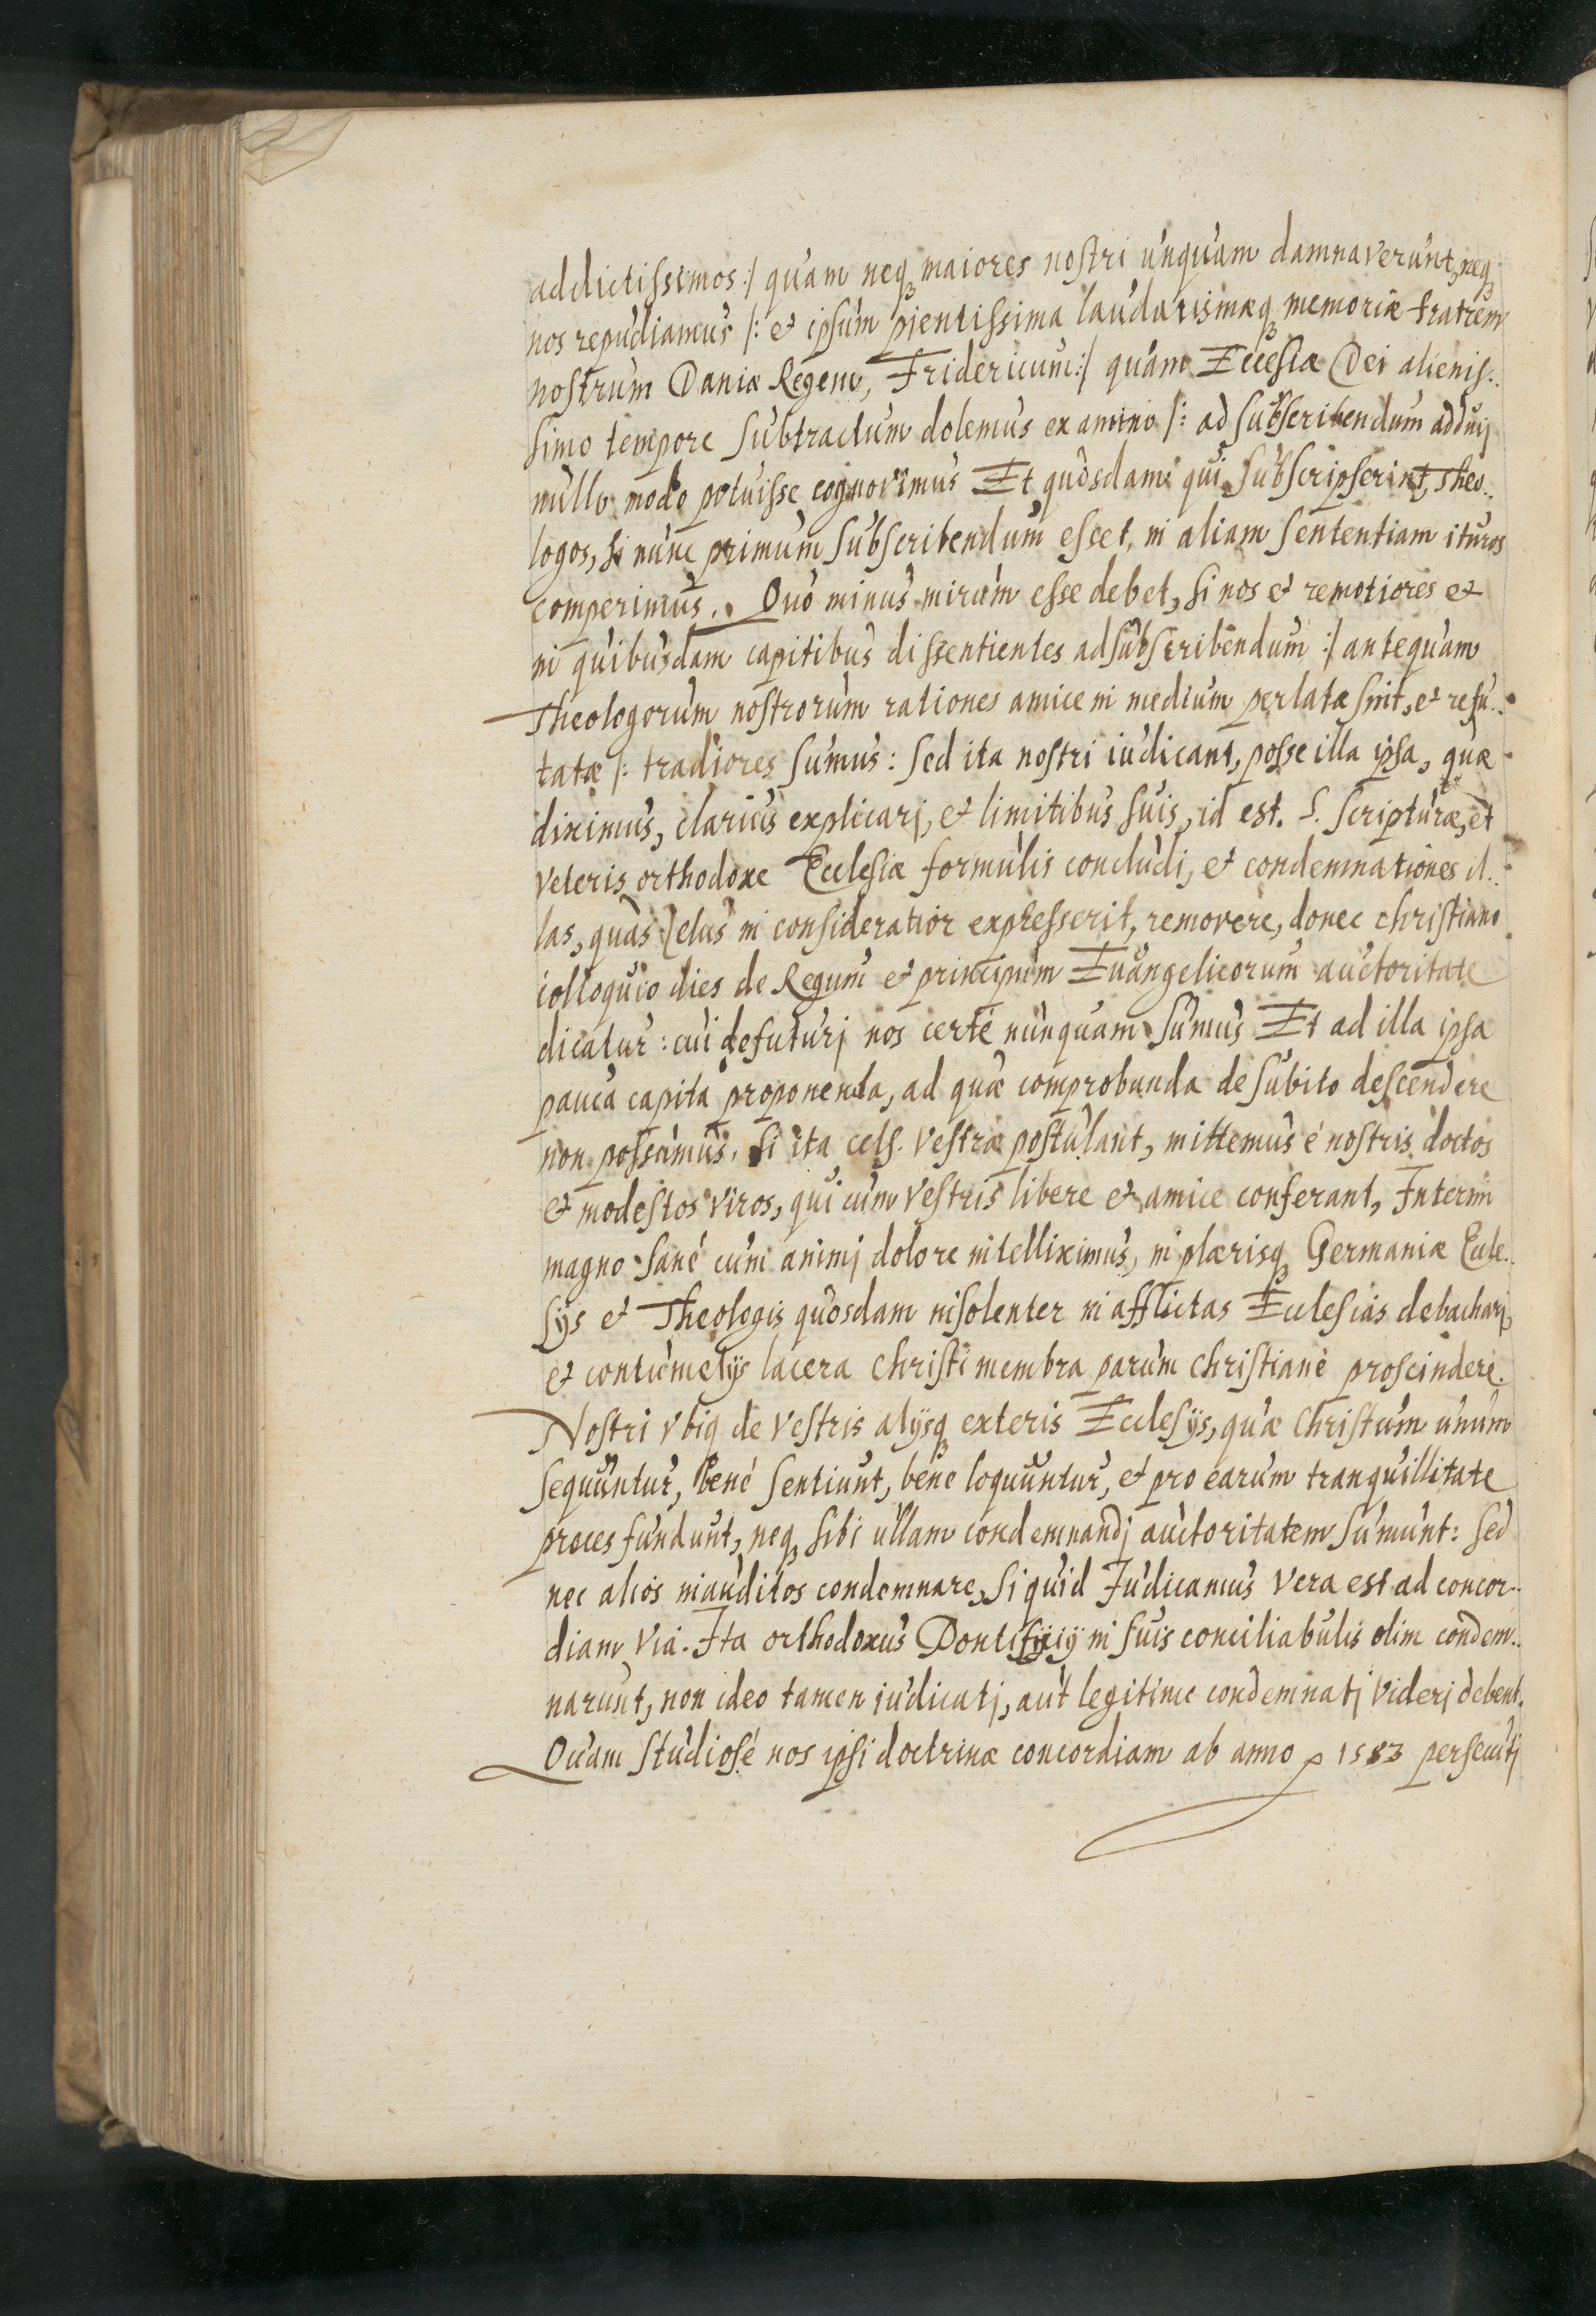 addictissimos :/ quam neq maiores nostri unquam damnaverunt, neq
nos repudiamus /: et ipsum pientissima laudatismæq memoriæ fratrem
nostrum Daniæ Regem, Fridericum :/ quam Ecclesiæ Dei alienis..
simo tempore subtractum dolemus ex animo /: ad subscribendum adduij
nullo modo potuisse cognovimus Et quosdam qui subscripserint, Theo..
logos, si nunc primum subscribendum esset, in aliam sententiam ituros
comperimus. Quo minus mirum esse debet, si nos et remotiores et
in quibusdam capitibus dissentientes ad subscribendum :/ antequam
Theologorum nostrorum rationes amice in medium perlatæ sint, et refu..
tatæ /: tradiores sumus: sed ita nostri iudicant, posse illa ipsa, quæ
diximus, clarius explicarj, et limitibus suis, id est. S. Scripturæ, et
veteris orthodoxe Ecclesiæ formulis concludi, et condemnationes il..
las, quas zelus in consideratior expresserit, removere, donec christiano
colloquio dies de Regum et principum Euangelicorum auctoritate
dicatur: cui defuturj nos certé nunquam sumus Et ad illa ipsa
pauca capita proponenda, ad quæ comprobanda de subito descendere
non possumus, si ita cels. vestræ postulant, mittemus é nostris doctos
et modestos viros, qui cum vestris libere et amice conferant, Interim
magno sané cum animj dolore intelliximus, in plærisq Germaniæ Eccle..
sijs et Theologis quosdam insolenter in afflictas Ecclesias debacharj,
et contumelijs lacera Christi membra parum christiané proscindere.
Nostri vbiq de vestris alijsq exteris Ecclesijs, quæ Christum unum
sequuntur, bené sentiunt, bene loquuntur, et pro earum tranquillitate
proces fundunt, neq sibi ullam condemnandj auctoritatem sumunt: sed
nec alios inauditos condemnare, si quid Iudicamus vera est ad concor..
diam via. Ita orthodoxus Pontificij in suis conciliabulis olim condem..
narunt, non ideo tamen iudicatj, aut legitime condemnatj viderj debent.
Quam studiosé nos ipsi doctrinæ concordiam ab anno 1583 persecutj